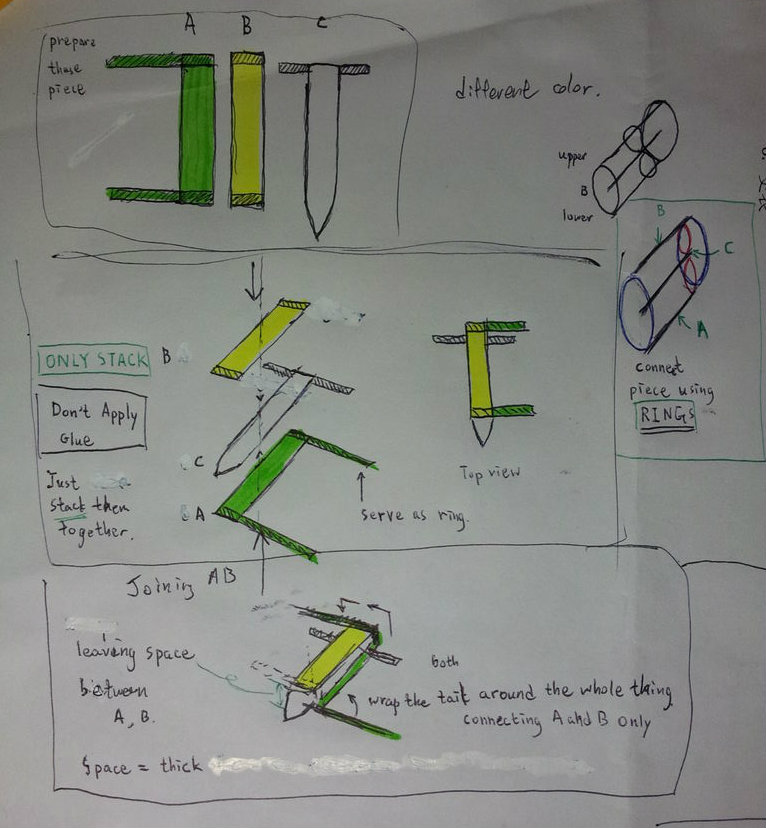 A B C
prepare
these
piece
different color.
upper
B
lower
B
C
A
connect
piece using
RINGS
ONLY STACK
B
Don't Apply
Glue
C
Just
stack them
together.
A
serve as ring.
Top view
Joining AB
leaving space
between
A, B.
both
wrap the tail around the whole thing
connecting A and B only
Space = thick